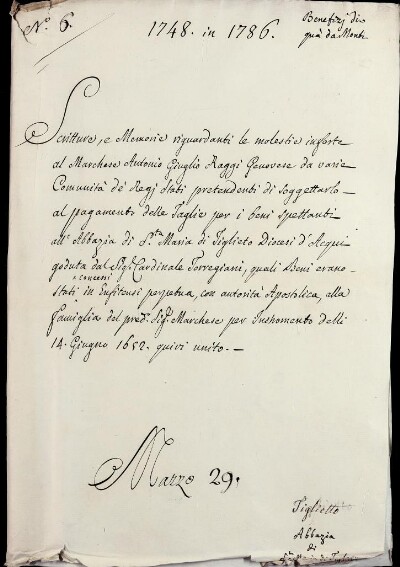 N.° 6.
1748. in 1786.
Benefizj di
quà da Monti
Scritture, e Memorie riguardanti le molestie inferte
al Marchese Antonio Giuglio Raggi Genovese da varie
Comunità de Regj Stati pretendenti di soggettarlo
al pagamento delle Taglie per i beni spettanti
all'Abbazia di S.ta Maria di Tiglieto Diocesi d'Acqui
goduta dal Sig.r Cardinale Torregiani, quali Beni erano
concessi
stati in Enfiteusi perpetua, con autorità Apostolica, alla
famiglia del pred.° Sig.r Marchese per Instromento delli
14. Giugno 1652. quivi unito. —
Mazzo 29.
Tiglietto
Abbazia
di
S.ta Maria di Tiglieto